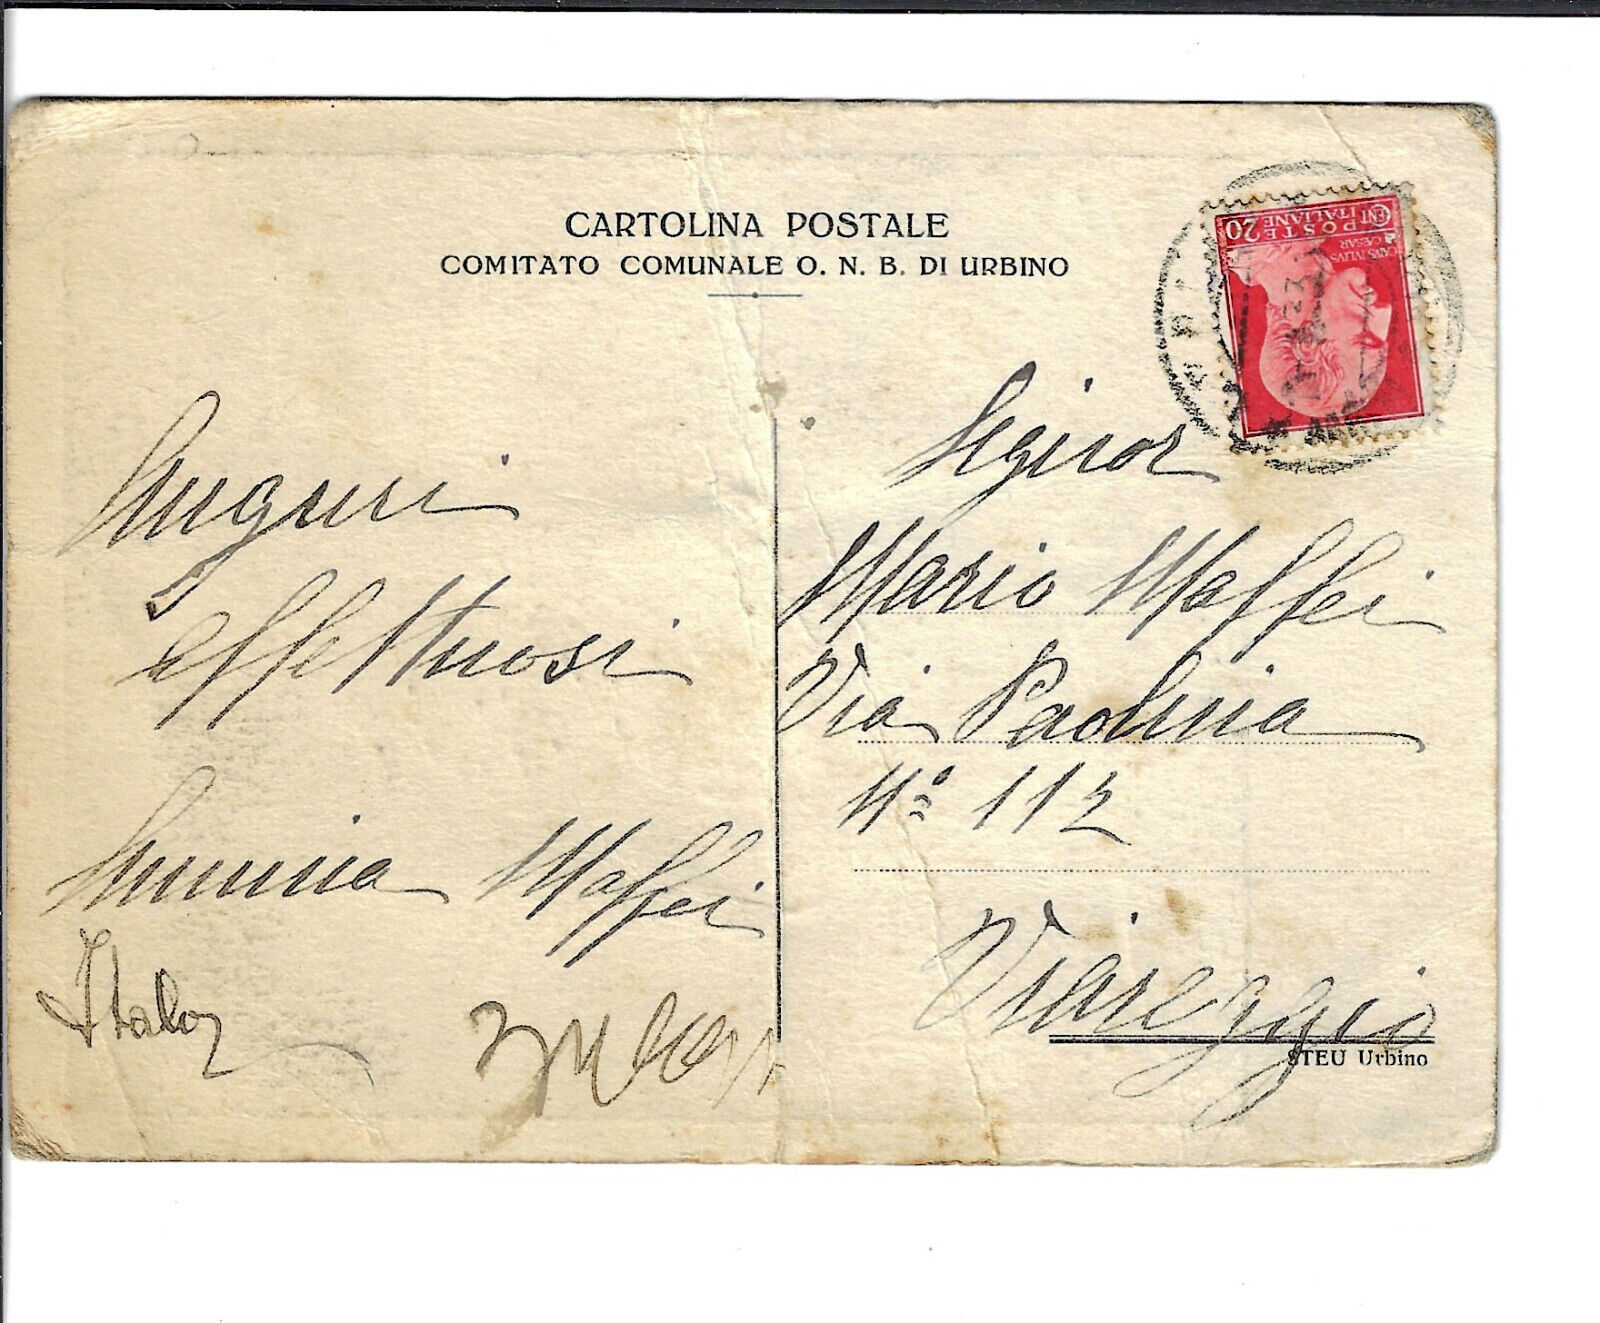 CARTOLINA POSTALE
COMITATO COMUNALE O. N. B. DI URBINO
CENT 20
POSTE ITALIANE
CAIVS IVLIVS
CAESAR
Auguri
affettuosi
Maffei
Italo
Signor
Mario Maffei
Via Paolina
N° 112
Viareggio
STEU Urbino